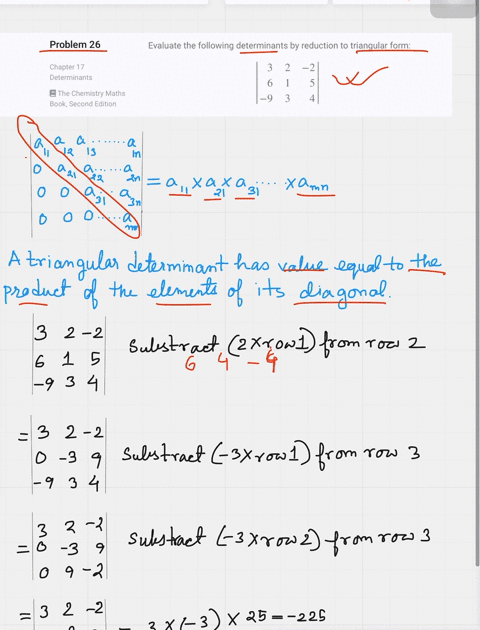 Problem 26 Evaluate the following determinants by reduction to triangular form:
Chapter 17
Determinants
The Chemistry Maths
Book, Second Edition
3 2 -2
6 1 5
-9 3 4
a11 a12 a13 ...... a1n
0 a21 a22 ... a2n
0 0 a31 ... a3n = a11 × a21 × a31 .... × amn
0 0 0 ..... amn
A triangular determinant has value equal to the
product of the elements of its diagonal.
3 2 -2
6 1 5 Substract (2×row1) from row 2
-9 3 4 6 4 -4
= 3 2 -2
0 -3 9 Substract (-3×row1) from row 3
-9 3 4
3 2 -2
= 0 -3 9 Substract (-3×row2) from row 3
0 9 -2
= 3 2 -2
= 3 × (-3) × 25 = -225